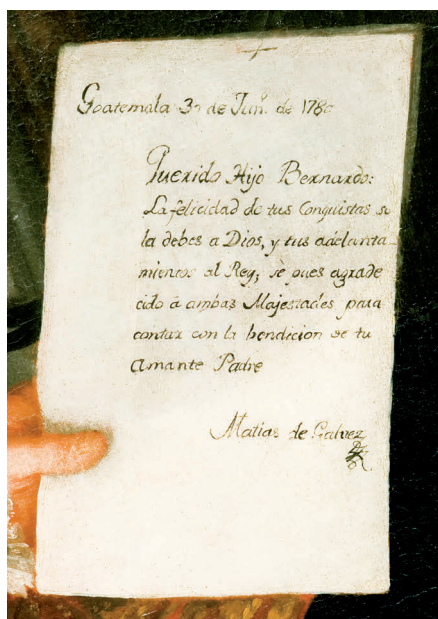 Goatemala 30 de Jun.º de 1780
Querido Hijo Bernardo:
La felicidad de tus Conquistas se
la debes a Dios, y tus adelanta-
mientos al Rey; se pues agrade
cido â ambas Majestades para
contar con la bendicion de tu
amante Padre
Matias de Galvez